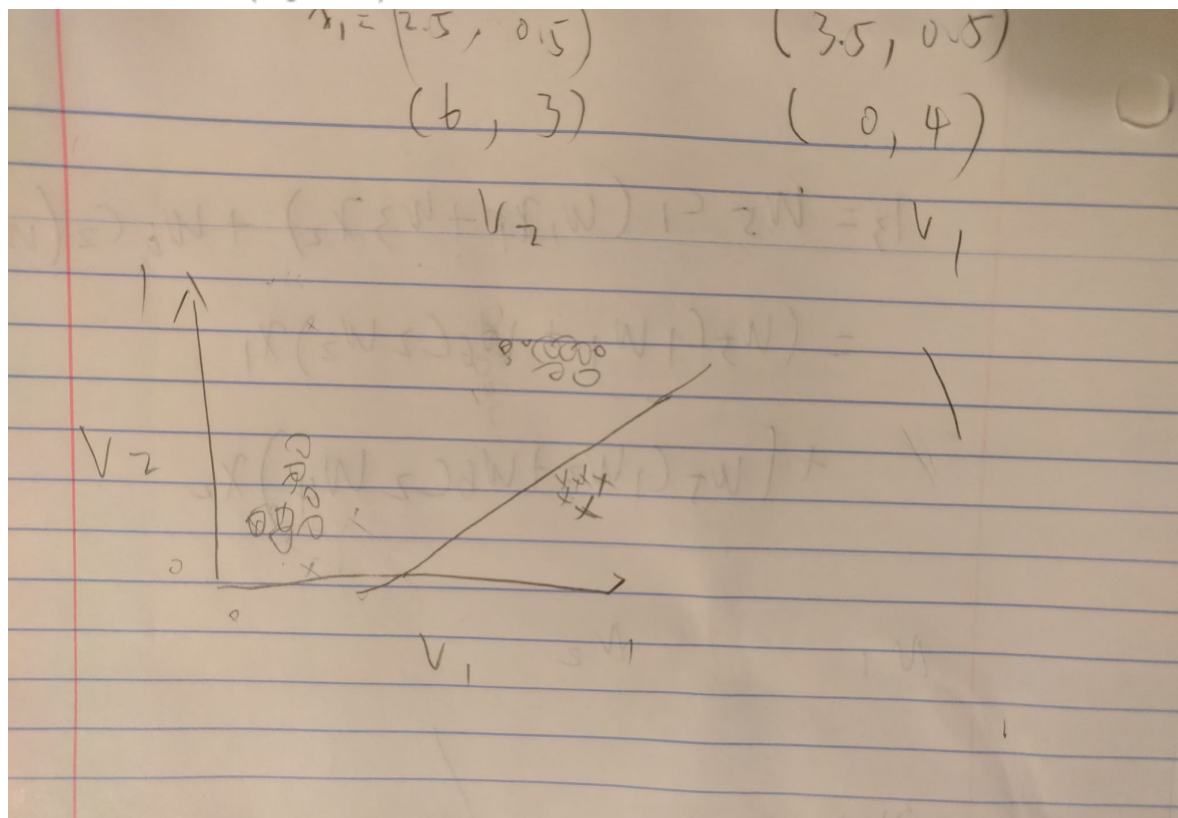 x₁ = (2.5, 0.5) (3.5, 0.5)
(6, 3) (0, 4)
V₂ V₁
1
V₂
0
0
V₁ 1